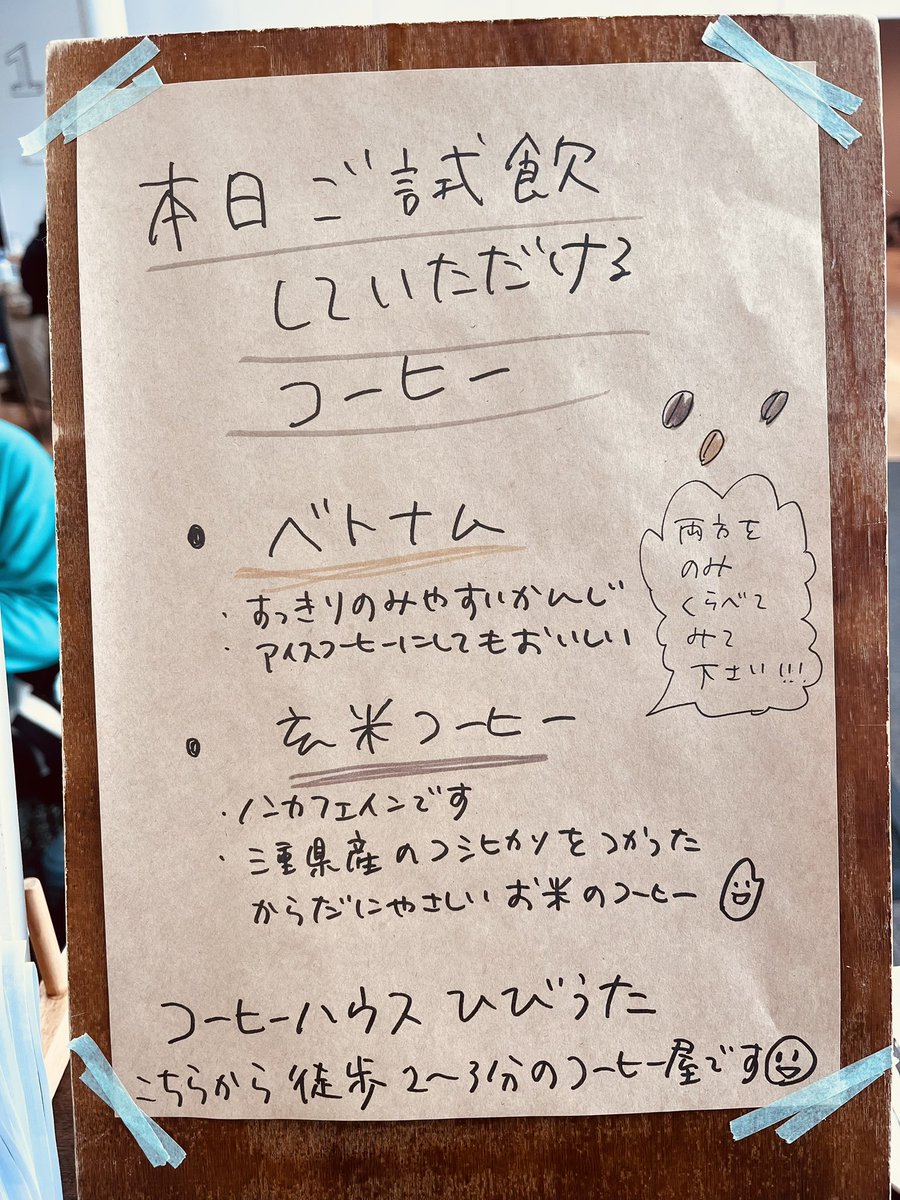 1
本日ご試飲
していただける
コーヒー
• ベトナム
・すっきりのみやすいかんじ
・アイスコーヒーにしてもおいしい
両方を
のみ
くらべて
みて
下さい!!!
• 玄米コーヒー
・ノンカフェインです
・三重県産のコシヒカリをつかった
からだにやさしいお米のコーヒー
コーヒーハウス ひびうた
こちらから徒歩2〜3分のコーヒー屋です